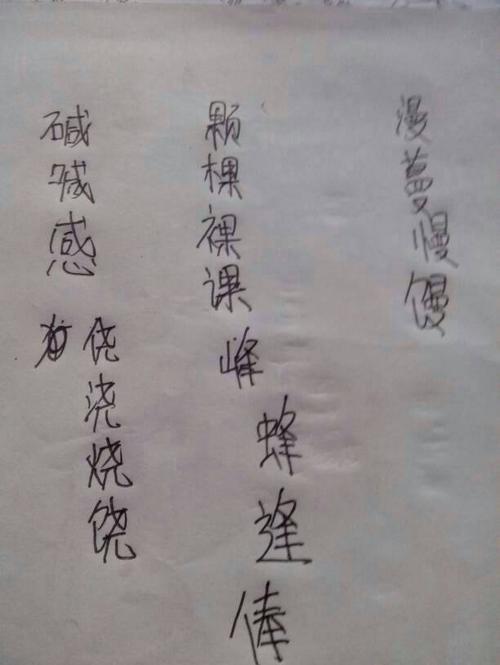 碱喊感
侥浇烧饶
颗棵裸课
峰蜂逢俸
漫蔓慢馒